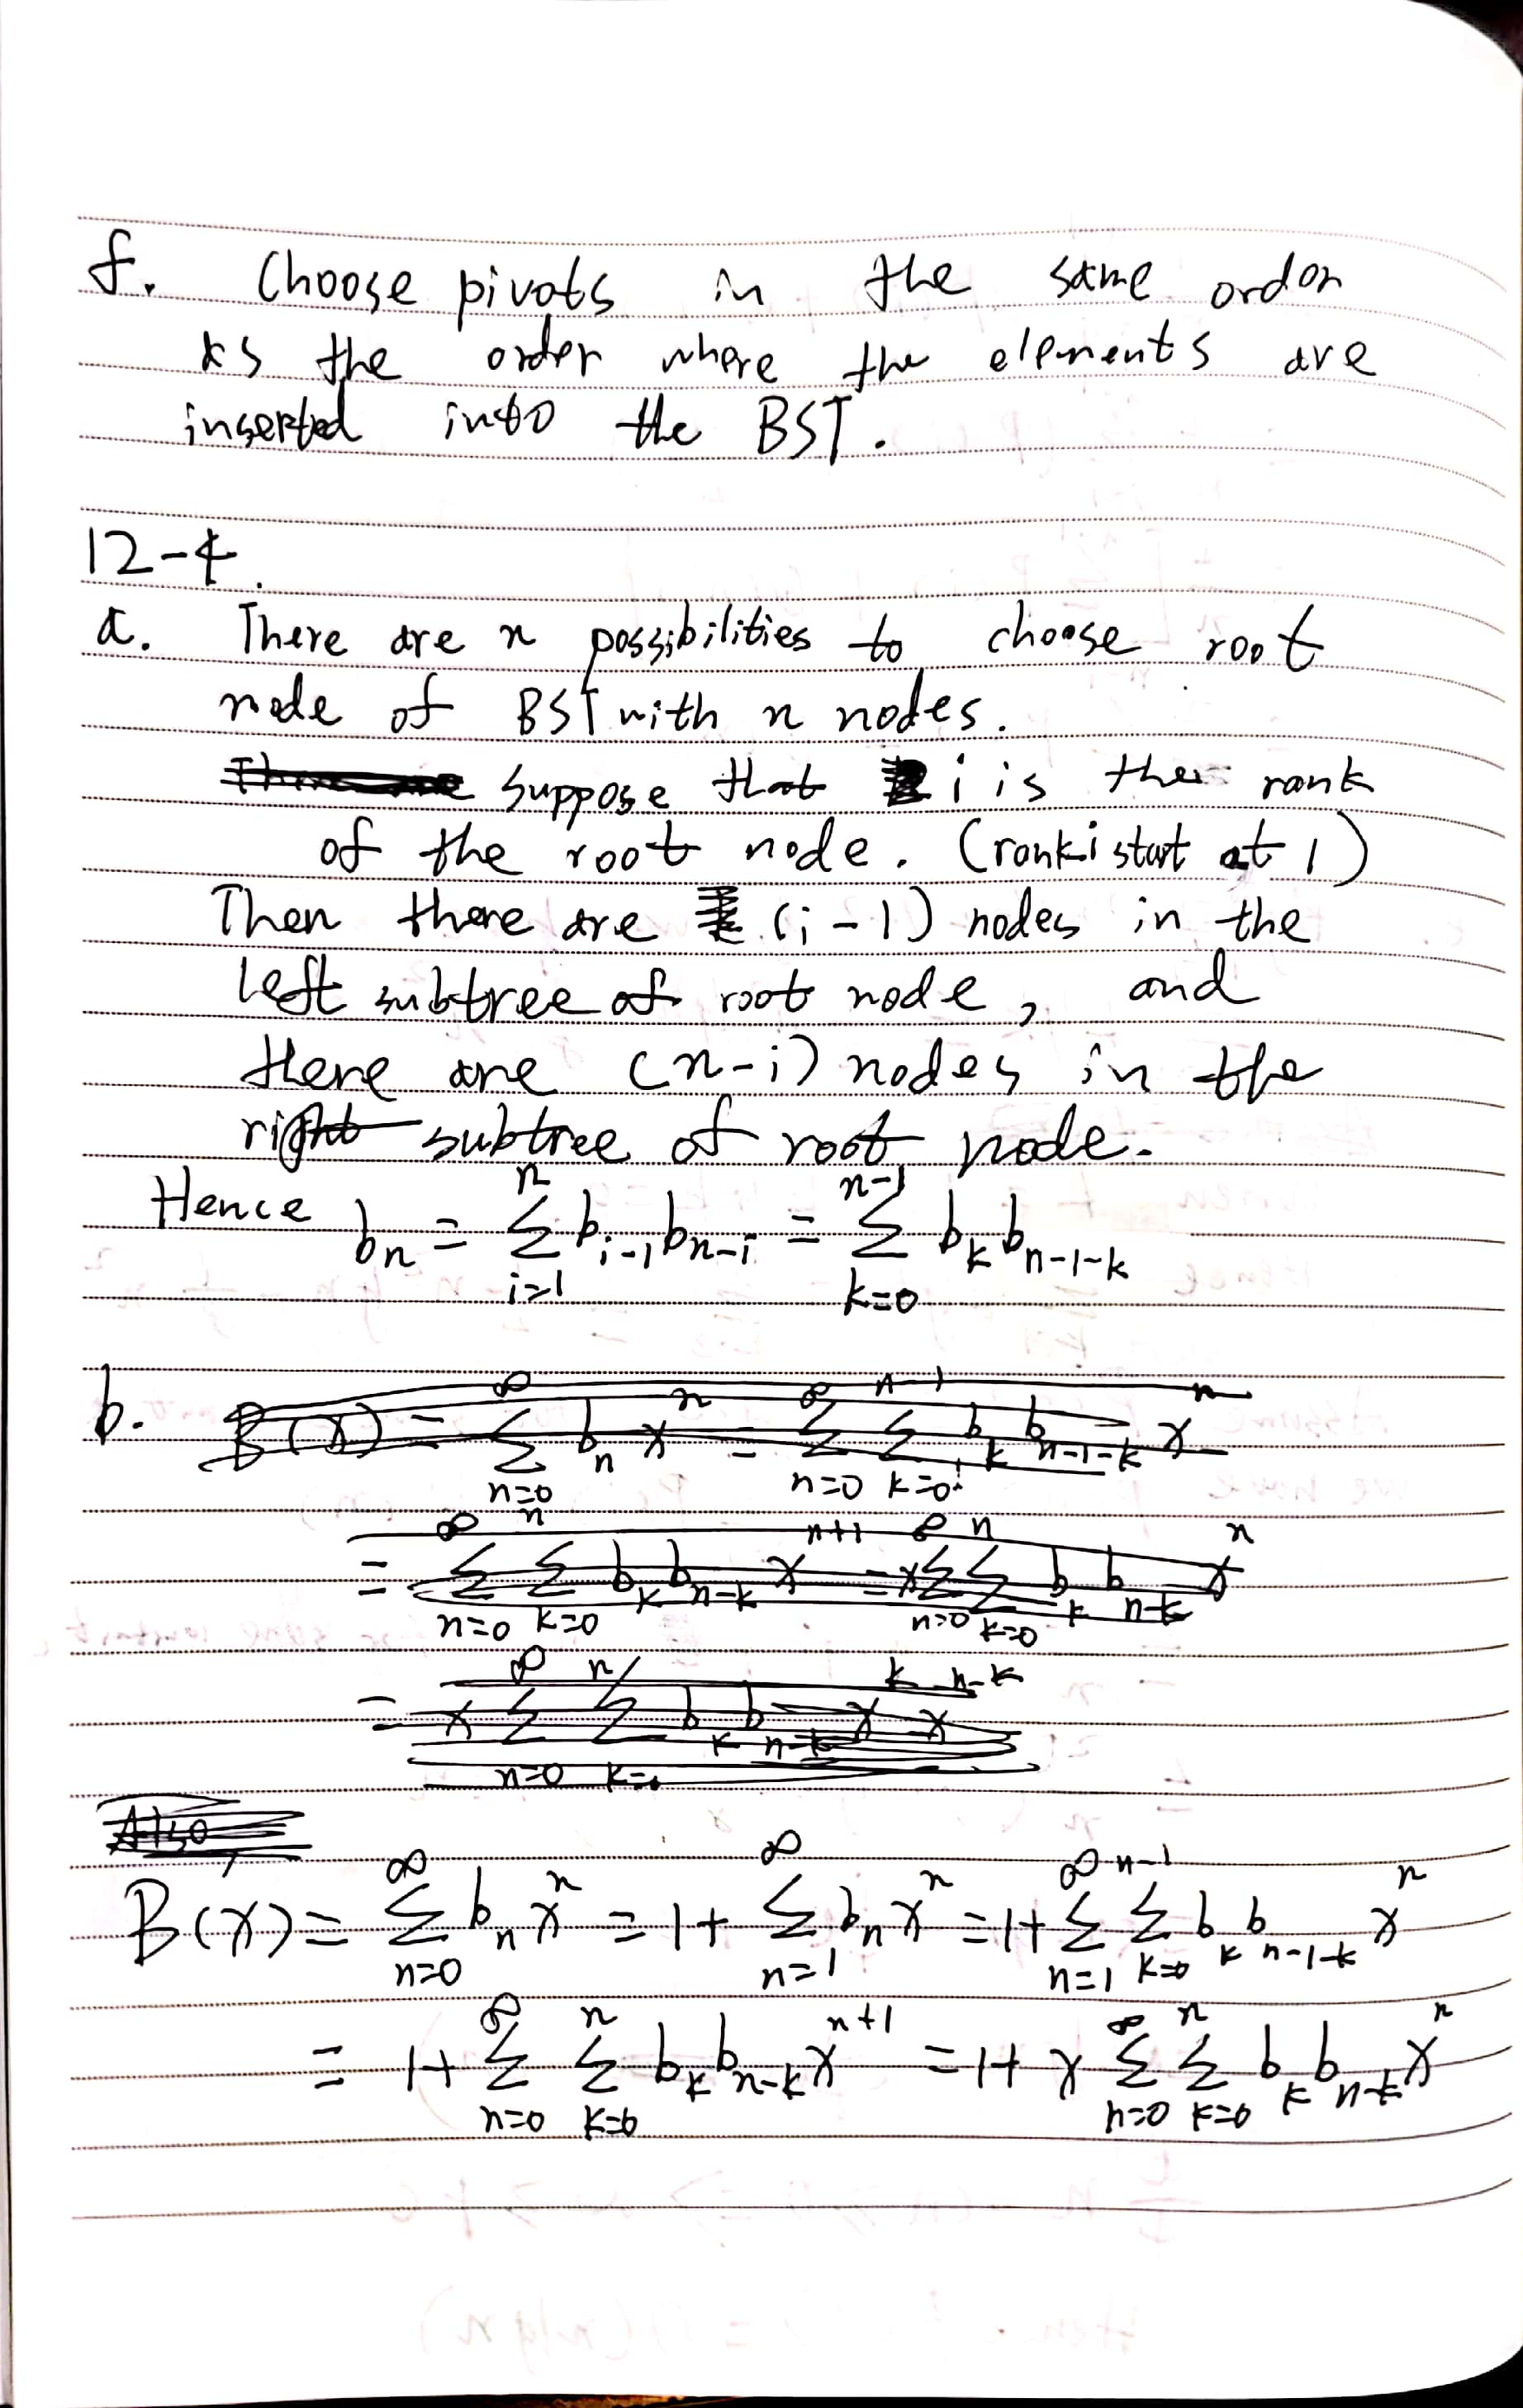 f. Choose pivots in the same order
as the order where the elements are
inserted into the BST.
12-4.
a. There are n possibilities to choose root
node of BST with n nodes.
Suppose that i is the rank
of the root node. (rank i start at 1)
Then there are (i-1) nodes in the
left subtree of root node, and
there are (n-i) nodes in the
right subtree of root node.
Hence bₙ = Σ_{i=1}^{n} b_{i-1} b_{n-i} = Σ_{k=0}^{n-1} b_k b_{n-1-k}
b. B(x) = Σ_{n=0}^{∞} bₙ xⁿ = Σ_{n=0}^{∞} Σ_{k=0}^{n-1} b_k b_{n-1-k} xⁿ
= Σ_{n=0}^{∞} Σ_{k=0}^{n} b_k b_{n-k} x^{n+1} = x Σ_{n=0}^{∞} Σ_{k=0}^{n} b_k b_{n-k} xⁿ
= x Σ_{n=0}^{∞} Σ_{k=0}^{n} b_k b_{n-k} x^k x^{n-k}
Also,
B(x) = Σ_{n=0}^{∞} bₙ xⁿ = 1 + Σ_{n=1}^{∞} bₙ xⁿ = 1 + Σ_{n=1}^{∞} Σ_{k=0}^{n-1} b_k b_{n-1-k} xⁿ
= 1 + Σ_{n=0}^{∞} Σ_{k=0}^{n} b_k b_{n-k} x^{n+1} = 1 + x Σ_{n=0}^{∞} Σ_{k=0}^{n} b_k b_{n-k} xⁿ